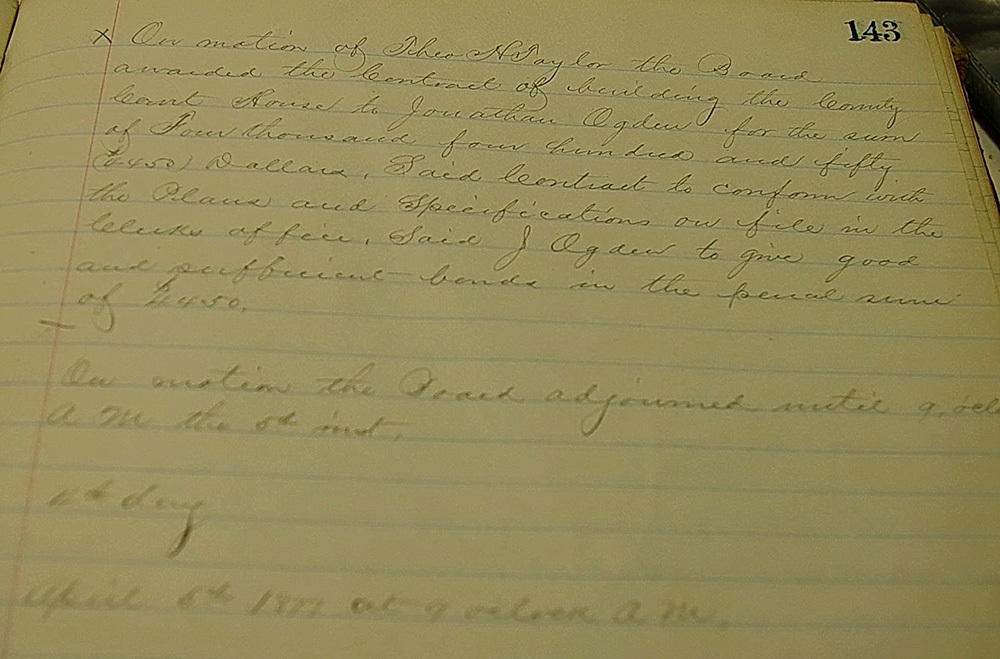 143
x On motion of Theo N Taylor the Board
awarded the Contract of building the County
Court House to Jonathan Ogden for the sum
of Four thousand four hundred and fifty
($4450) Dollars. Said Contract to conform with
the Plans and Specifications on file in the
Clerks office. Said J Ogden to give good
and sufficient bonds in the penal sum
of $4450.
On motion the Board adjourned until 9, ocl
A M the 5th inst.
day
April 5th at 9 oclock A M.